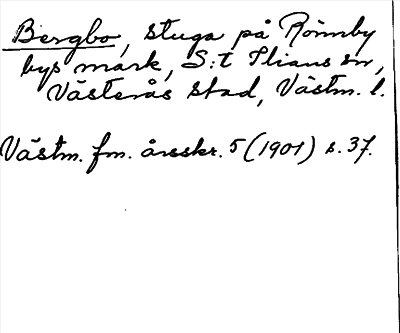 Bergbo, stuga på Rönnby
bys mark, S:t Ilians sn,
Västerås stad, Västm. l.
Västm. fm. årsskr. 5 (1901) s. 37.